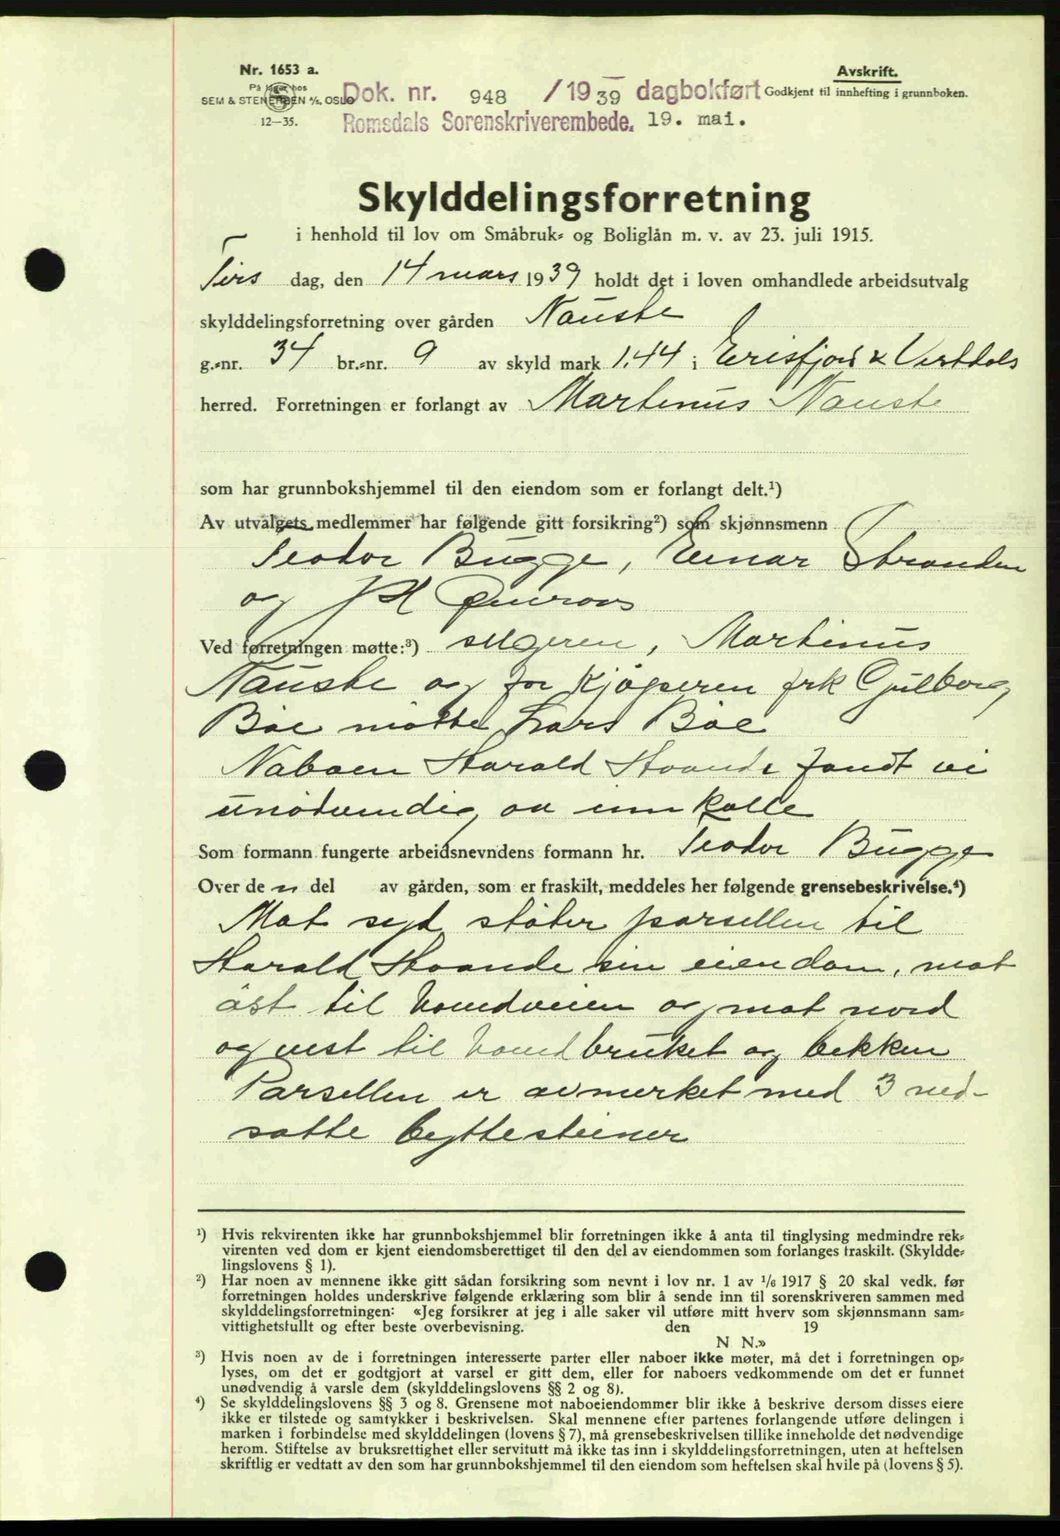 Nr. 1653 a.
På lager hos
SEM & STENERSEN A/S, OSLO
12—35.
Dok. nr. 948 / 1939 dagbokført
Romsdals Sorenskriverembede. 19. mai.
Avskrift.
Godkjent til innhefting i grunnboken.
Skylddelingsforretning
i henhold til lov om Småbruk- og Boliglån m. v. av 23. juli 1915.
Tirs dag, den 14 mars 1939 holdt det i loven omhandlede arbeidsutvalg
skylddelingsforretning over gården Nauste
g.-nr. 34 br.-nr. 9 av skyld mark 1.44 i Eirisfjord & Vistdals
herred. Forretningen er forlangt av Martinus Nauste
som har grunnbokshjemmel til den eiendom som er forlangt delt.¹)
Av utvalgets medlemmer har følgende gitt forsikring²) som skjønnsmenn
Teodor Bugge, Einar Stranden
og
Ved forretningen møtte:³) selgeren, Martinus
Nauste og for kjøperen frk Gulborg
Bøe møtte Lars Bøe
Naboen Harald fandt vi
unødvendig aa innkalle
Som formann fungerte arbeidsnevndens formann hr. Teodor Bugge
Over den del av gården, som er fraskilt, meddeles her følgende grensebeskrivelse.⁴)
Mot syd støter parsellen til
Harald sin eiendom, mot
øst til hovedveien og mot nord
og vest til hovedbruket og bekken
Parsellen er avmerket med 3 ned-
satte byttesteiner
¹) Hvis rekvirenten ikke har grunnbokshjemmel blir forretningen ikke å anta til tinglysing medmindre rek-
virenten ved dom er kjent eiendomsberettiget til den del av eiendommen som forlanges fraskilt. (Skyldde-
lingslovens § 1).
²) Har noen av mennene ikke gitt sådan forsikring som nevnt i lov nr. 1 av 1/6 1917 § 20 skal vedk. før
forretningen holdes underskrive følgende erklæring som blir å sende inn til sorenskriveren sammen med
skylddelingsforretningen: «Jeg forsikrer at jeg i alle saker vil utføre mitt hverv som skjønnsmann sam-
vittighetsfullt og efter beste overbevisning. den 19
N N.»
³) Hvis noen av de i forretningen interesserte parter eller naboer ikke møter, må det i forretningen op-
lyses, om det er godtgjort at varsel er gitt dem, eller for naboers vedkommende om det er funnet
unødvendig å varsle dem (skylddelingslovens §§ 2 og 8).
⁴) Se skylddelingslovens §§ 3 og 8. Grensene mot naboeiendommer blir ikke å beskrive dersom disses eiere
ikke er tilstede og samtykker i beskrivelsen. Skal mennene efter partenes forlangende utføre delingen i
marken i forbindelse med skylddelingen (lovens § 7), må grensebeskrivelsen tillike inneholde det nødvendige
herom. Stiftelse av bruksrettighet eller servitutt må ikke tas inn i skylddelingsforretningen, uten at heftelsen
skriftlig er vedtatt av den som har grunnbokshjemmel til den eiendom som heftelsen skal hvile på (lovens § 5).